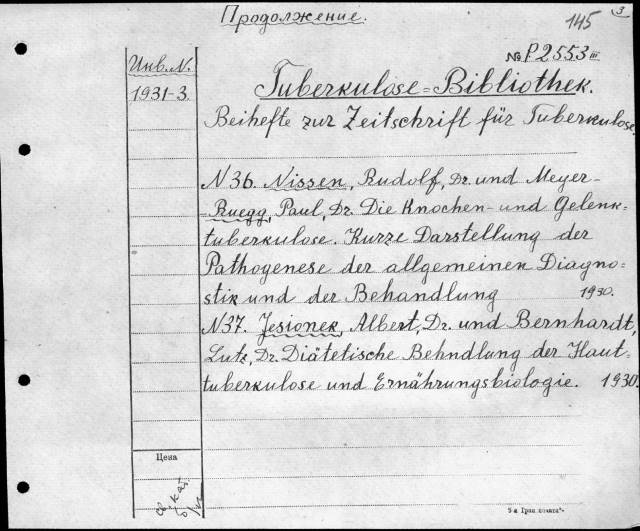 Продолжение.
3
145
Инв. N.
1931-3.
№ P2553 III
Tuberkulose=Bibliothek.
Beihefte zur Zeitschrift für Tuberkulose.
N36. Nissen, Rudolf, Dr. und Meyer-
-Ruegg, Paul, Dr. Die Knochen- und Gelenk-
tuberkulose. Kurze Darstellung der
Pathogenese der allgemeinen Diagno-
stik und der Behandlung 1930.
N37. Jesionek, Albert, Dr. und Bernhardt,
Lutz, Dr. Diätetische Behndlung der Haut-
tuberkulose und Ernährungsbiologie. 1930.
Цена